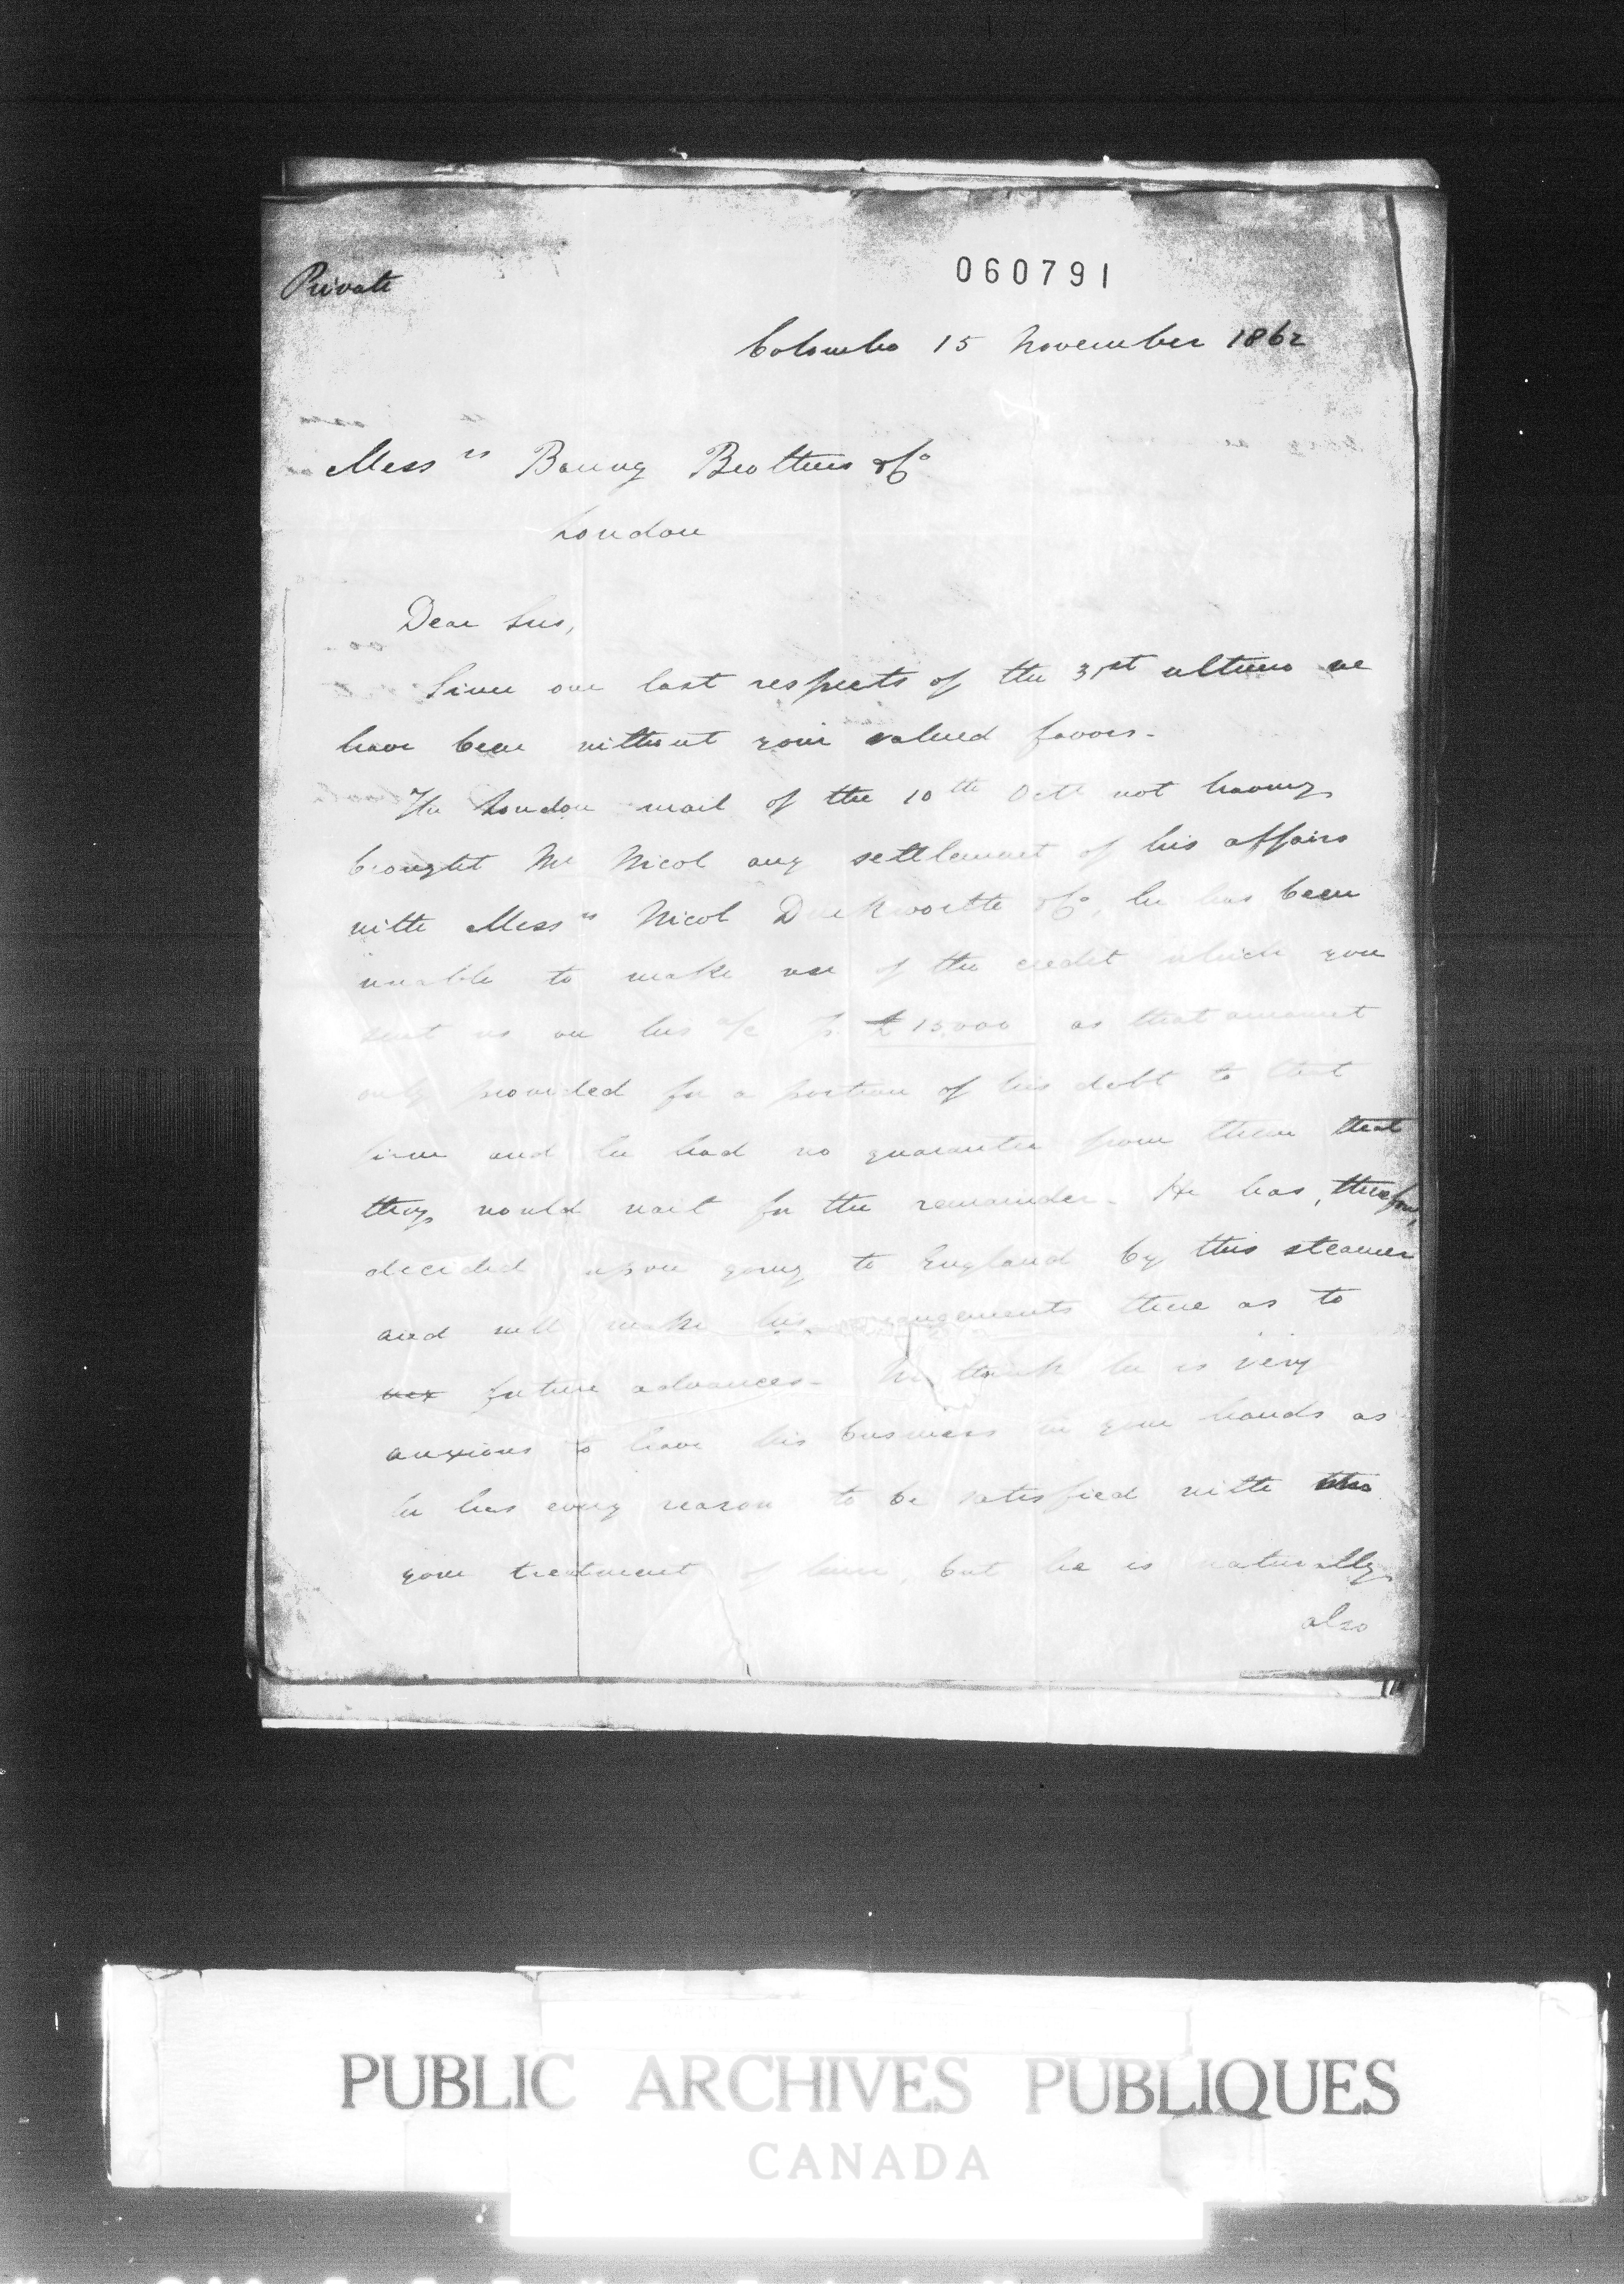 Private
060791
Colombo 15 November 1862
Mess rs Baring Brothers & Co
London
Dear Sirs,
Since our last respects of the 31st ultimo we
have been without your valued favors -
The London mail of the 10th Octr not having
brought Mr Nicol any settlement of his affairs
with Mess rs Nicol Duckworth & Co, he has been
unable to make use of the credit which you
sent us on his a/c for £15,000 as that amount
only provided for a portion of his debt to that
firm and he had no guarantee from them that
they would wait for the remainder - He has, therefore,
decided upon going to England by this steamer
and will make his arrangements there as to
future advances - We think he is very
anxious to leave his business in your hands as
he has every reason to be satisfied with
your treatment of him, but he is naturally
also
PUBLIC ARCHIVES PUBLIQUES
CANADA